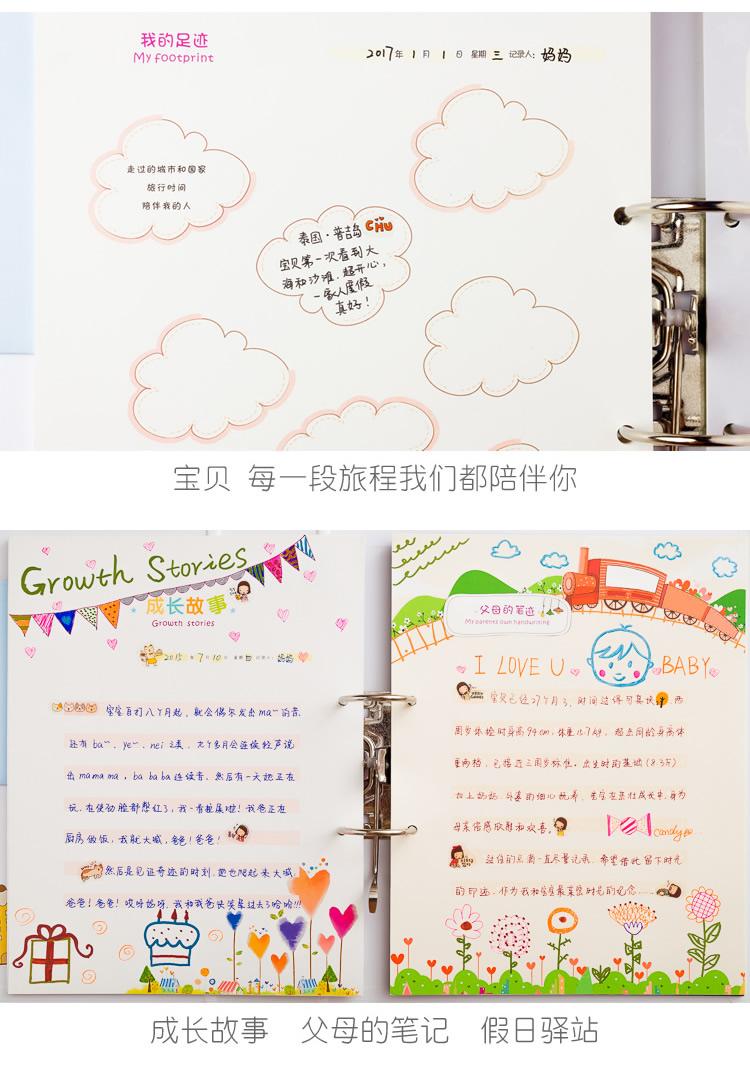 我的足迹
My footprint
2017年 1月 1日 星期 三 记录人: 妈妈
走过的城市和国家
旅行时间
陪伴我的人
泰国·普吉岛 CHU
宝贝第一次看到大
海和沙滩,超开心,
一家人度假
真好!
宝贝 每一段旅程我们都陪伴你
Growth Stories
成长故事
Growth stories
2015年 7月 10日 星期 日 记录人: 妈妈
宝宝百打八个月起,就会偶尔发出ma~的音.
还有ba~、ye~、nei 之类,大个多月会连续轻声说
出mamama, bababa连续音.然后有一天她正在
玩.在使劲脸都憋红了,我一看拉屎啦!我爸正在
厨房做饭,我就大喊,爸爸!爸爸!
然后是见证奇迹的时刻.她也爬起来大喊.
爸爸!爸爸!哎呀妈呀.我和我爸快笑晕过去了哈哈!!!
父母的笔迹
My parents own handwriting
I LOVE U BABY
宝贝已经27个月了,时间过得可真快 两
周岁体检时身高94cm,体重
出生时的
candy
这样的点滴一直尽量记录,希望借此留下时光
的印迹,作为我和宝宝最美好时光的纪念......
成长故事 父母的笔记 假日驿站